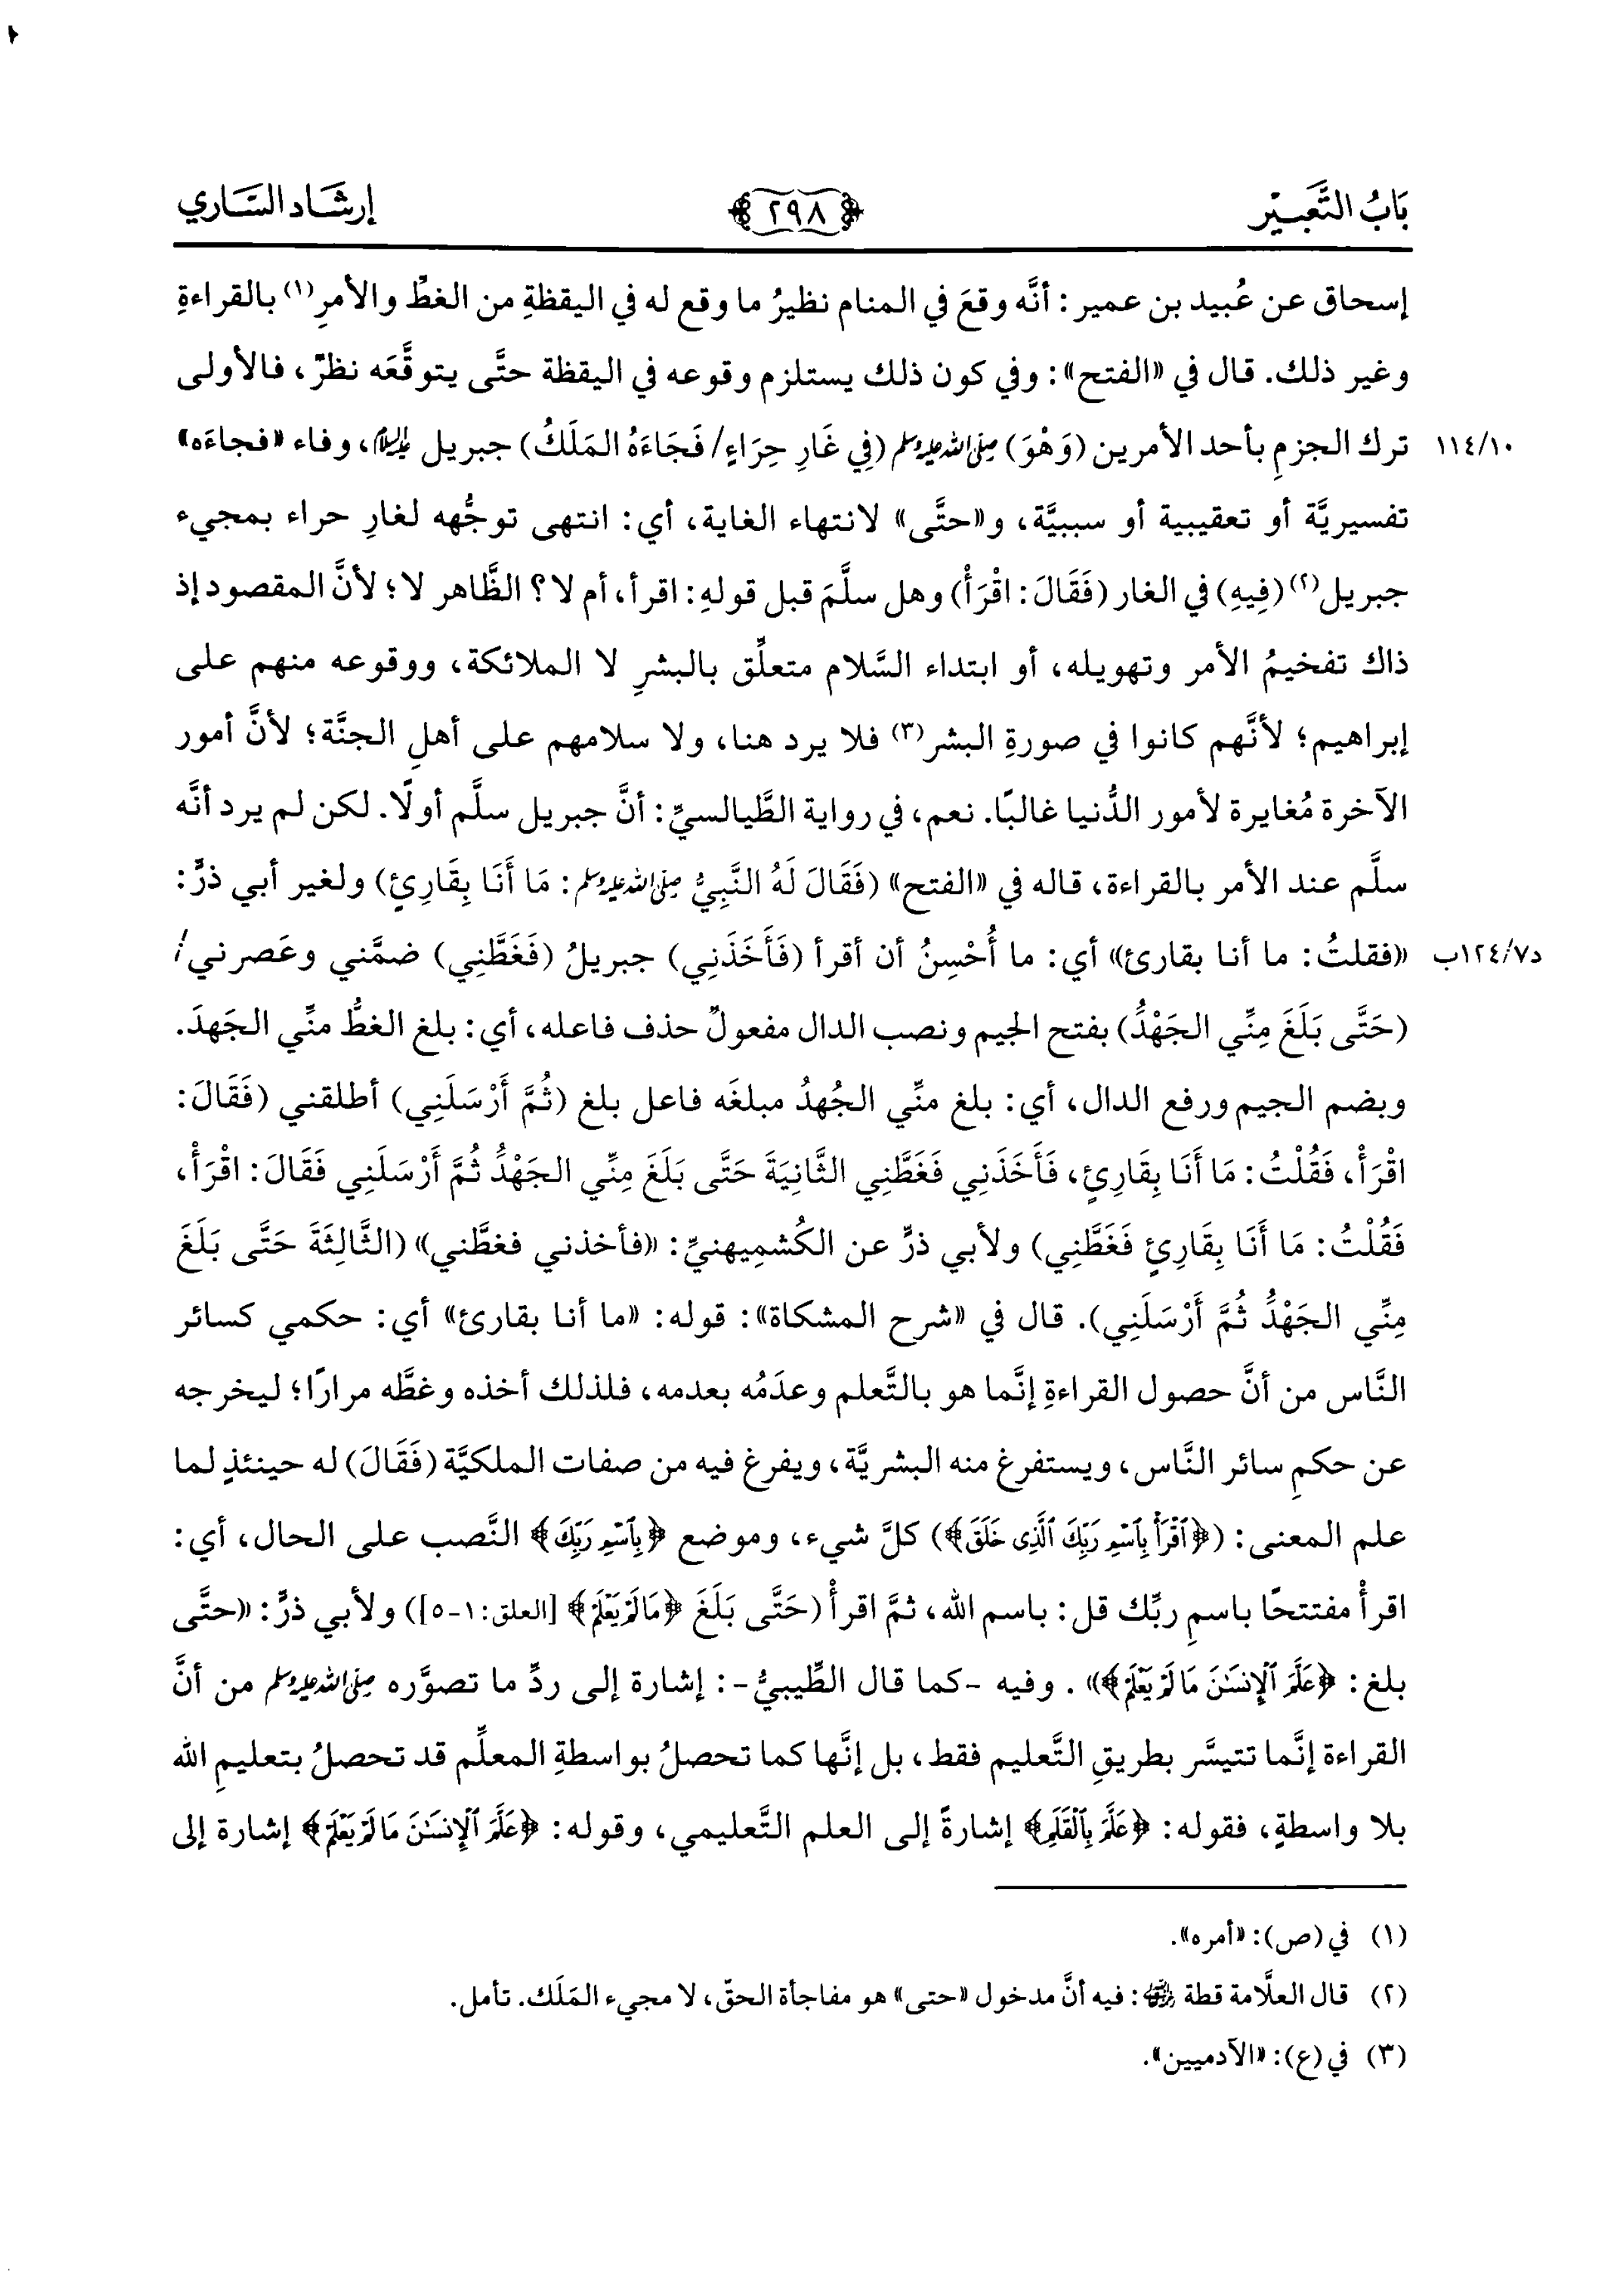 بَابُ التَّعبِيْر ٢٩٨ إرشَاد السَّاري
إسحاق عن عُبيد بن عمير: أنَّه وقعَ في المنام نظيرُ ما وقع له في اليقظةِ من الغطِّ والأمرِ(١) بالقراءةِ
وغير ذلك. قال في «الفتح»: وفي كون ذلك يستلزم وقوعه في اليقظة حتَّى يتوقَّعَه نظرٌ، فالأولى
١١٤/١٠ ترك الجزمِ بأحد الأمرين (وَهْوَ) صلى الله عليه وسلم (فِي غَارِ حِرَاءٍ/ فَجَاءَهُ المَلَكُ) جبريل عليه السلام، وفاء «فجاءَه»
تفسيريَّة أو تعقيبية أو سببيَّة، و«حتَّى» لانتهاء الغاية، أي: انتهى توجُّهه لغارِ حراء بمجيء
جبريل(٢) (فِيهِ) في الغار (فَقَالَ: اقْرَأْ) وهل سلَّمَ قبل قولهِ: اقرأ، أم لا؟ الظَّاهر لا؛ لأنَّ المقصود إذ
ذاك تفخيمُ الأمر وتهويله، أو ابتداء السَّلام متعلِّق بالبشرِ لا الملائكة، ووقوعه منهم على
إبراهيم؛ لأنَّهم كانوا في صورةِ البشر(٣) فلا يرد هنا، ولا سلامهم على أهلِ الجنَّة؛ لأنَّ أمور
الآخرة مُغايرة لأمور الدُّنيا غالبًا. نعم، في رواية الطَّيالسيِّ: أنَّ جبريل سلَّم أولًا. لكن لم يرد أنَّه
سلَّم عند الأمر بالقراءة، قاله في «الفتح» (فَقَالَ لَهُ النَّبِيُّ صلى الله عليه وسلم: مَا أَنَا بِقَارِئٍ) ولغير أبي ذرٍّ:
د١٢٤/٧ب «فقلتُ: ما أنا بقارئ» أي: ما أُحْسِنُ أن أقرأ (فَأَخَذَنِي) جبريلُ (فَغَطَّنِي) ضمَّني وعَصرني/
(حَتَّى بَلَغَ مِنِّي الجَهْدَُ) بفتح الجيم ونصب الدال مفعولٌ حذف فاعله، أي: بلغ الغطُّ منِّي الجَهدَ.
وبضم الجيم ورفع الدال، أي: بلغ منِّي الجُهدُ مبلغَه فاعل بلغ (ثُمَّ أَرْسَلَنِي) أطلقني (فَقَالَ:
اقْرَأْ، فَقُلْتُ: مَا أَنَا بِقَارِئٍ، فَأَخَذَنِي فَغَطَّنِي الثَّانِيَةَ حَتَّى بَلَغَ مِنِّي الجَهْدَُ ثُمَّ أَرْسَلَنِي فَقَالَ: اقْرَأْ،
فَقُلْتُ: مَا أَنَا بِقَارِئٍ فَغَطَّنِي) ولأبي ذرٍّ عن الكُشمِيهنيِّ: «فأخذني فغطَّني» (الثَّالِثَةَ حَتَّى بَلَغَ
مِنِّي الجَهْدَُ ثُمَّ أَرْسَلَنِي). قال في «شرح المشكاة»: قوله: «ما أنا بقارئ» أي: حكمي كسائر
النَّاس من أنَّ حصول القراءةِ إنَّما هو بالتَّعلم وعدَمُه بعدمه، فلذلك أخذه وغطَّه مرارًا؛ ليخرجه
عن حكمِ سائر النَّاس، ويستفرغ منه البشريَّة، ويفرغ فيه من صفات الملكيَّة (فَقَالَ) له حينئذٍ لما
علم المعنى: (﴿ٱقْرَأْ بِٱسْمِ رَبِّكَ ٱلَّذِى خَلَقَ﴾) كلَّ شيء، وموضع ﴿بِٱسْمِ رَبِّكَ﴾ النَّصب على الحال، أي:
اقرأْ مفتتحًا باسمِ ربِّك قل: باسم الله، ثمَّ اقرأْ (حَتَّى بَلَغَ ﴿مَا لَمْ يَعْلَمْ﴾ [العلق: ١-٥]) ولأبي ذرٍّ: «حتَّى
بلغ: ﴿عَلَّمَ ٱلْإِنسَٰنَ مَا لَمْ يَعْلَمْ﴾» . وفيه -كما قال الطِّيبيُّ-: إشارة إلى ردِّ ما تصوَّره صلى الله عليه وسلم من أنَّ
القراءة إنَّما تتيسَّر بطريقِ التَّعليم فقط، بل إنَّها كما تحصلُ بواسطةِ المعلِّم قد تحصلُ بتعليمِ الله
بلا واسطةٍ، فقوله: ﴿عَلَّمَ بِٱلْقَلَمِ﴾ إشارةً إلى العلم التَّعليمي، وقوله: ﴿عَلَّمَ ٱلْإِنسَٰنَ مَا لَمْ يَعْلَمْ﴾ إشارة إلى
(١) في (ص): «أمره».
(٢) قال العلَّامة قطة رحمه الله: فيه أنَّ مدخول «حتى» هو مفاجأة الحقّ، لا مجيء المَلَك. تأمل.
(٣) في (ع): «الآدميين».